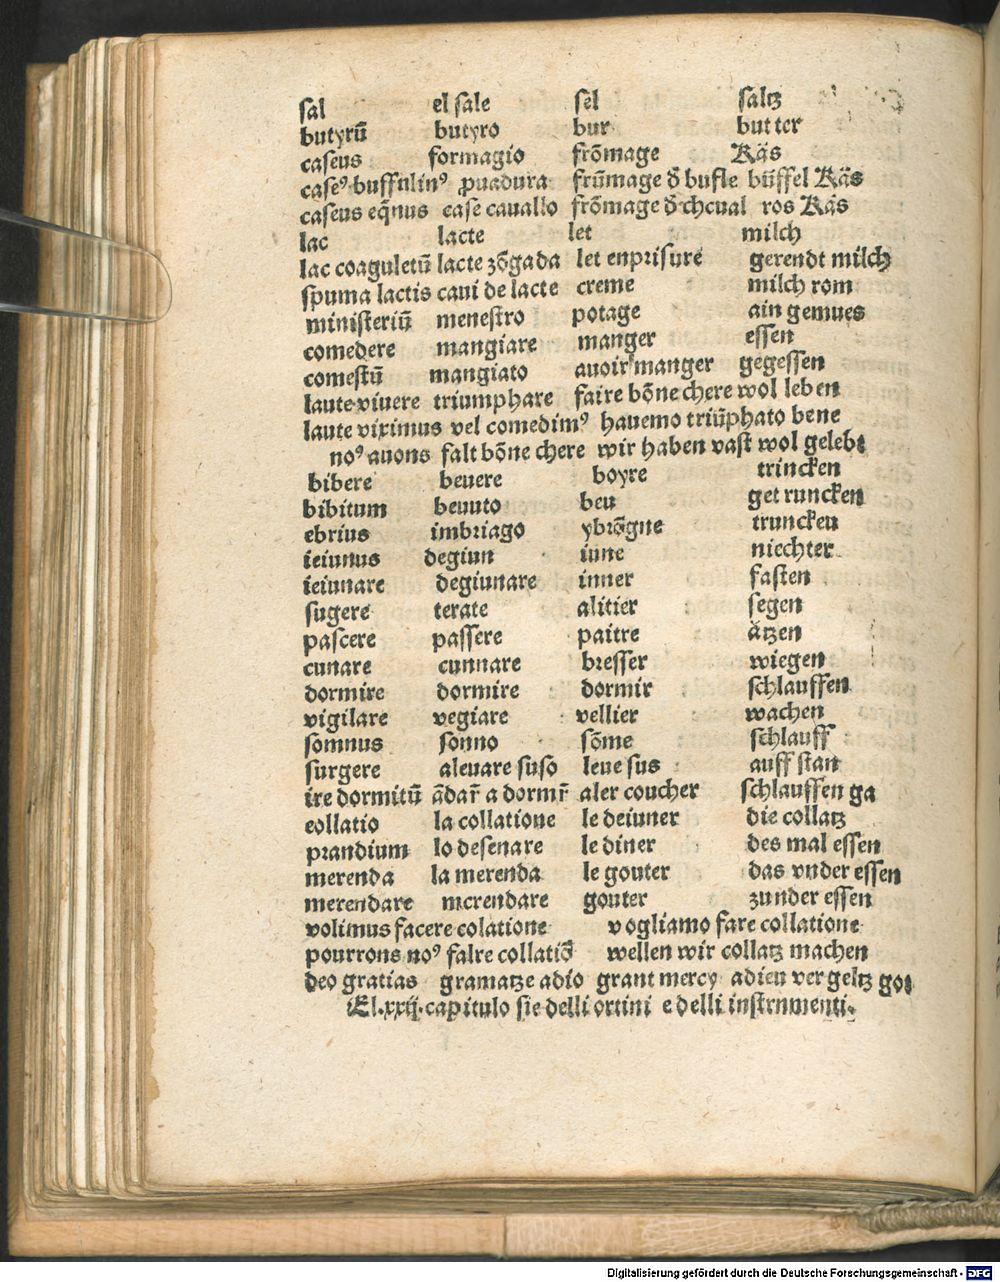 sal el sale sel saltz
butyrū butyro bur butter
caseus formagio frōmage Käs
caseꝰ buffulinꝰ ꝓuadura frūmage ď bufle büffel Käs
caseus eq̄nus case cauallo frōmage ď chcual ros Käs
lac lacte let milch
lac coaguletū lacte zōgada let enprisure gerendt milch
spuma lactis caui de lacte creme milch rom
ministeriū menestro potage ain gemues
comedere mangiare manger essen
comestū mangiato auoir manger gegessen
laute viuere triumphare faire bōne chere wol leben
laute viximus vel comedimꝰ hauemo triūphato bene
noꝰ auons fait bōne chere wir haben vast wol gelebt
bibere beuere boyre trincken
bibitum beuuto beu getruncken
ebrius imbriago ybrōgne truncken
ieiunus degiun iune niechter
ieiunare degiunare inner fasten
sugere terate alitier segen
pascere passere paitre ätzen
cunare cunnare bresser wiegen
dormire dormire dormir schlauffen
vigilare vegiare vellier wachen
somnus sonno sōme schlauff
surgere aleuare suso leue sus auff stan
ire dormitū ādar̄ a dormr̄ aler coucher schlauffen ga
collatio la collatione le deiuner die collatz
prandium lo desenare le diner des mal essen
merenda la merenda le gouter das vnder essen
merendare merendare gouter zunder essen
volimus facere colatione vogliamo fare collatione
pourrons noꝰ faire collatiō wellen wir collatz machen
deo gratias gramatze adio grant mercy adieu vergeltz got
El.xxij.capitulo sie delli ortini e delli instrumenti.
Digitalisierung gefördert durch die Deutsche Forschungsgemeinschaft - DFG